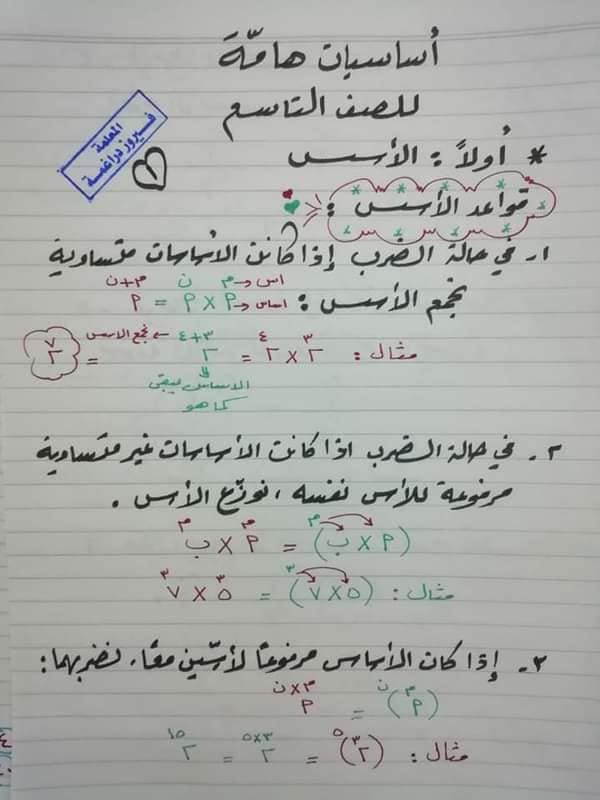 أساسيات هامّة
للصف التاسع
المعلمة
فيروز دراغمة
١
* أولاً : الأسس
قواعد الأسس :
١- في حالة الضرب إذا كانت الأساسات متساوية
نجمع الأسس : أساس → م ← أس × م^ن = م^(م+ن)
مثال : ٢^٣ × ٢^٤ = ٢^(٣+٤) → نجمع الأسس = ٢^٧
الأساس يبقى
كما هو
٢- في حالة الضرب اذا كانت الأساسات غير متساوية
مرفوعة للأس نفسه ، نوزّع الأس .
(م × ب)^م = م^م × ب^م
مثال : (٥ × ٧)^٣ = ٥^٣ × ٧^٣
٣- إذا كان الأساس مرفوعاً لأسّين معاً ، نضربهما :
(م^م)^ن = م^(م×ن)
مثال : (٢^٣)^٥ = ٢^(٣×٥) = ٢^١٥